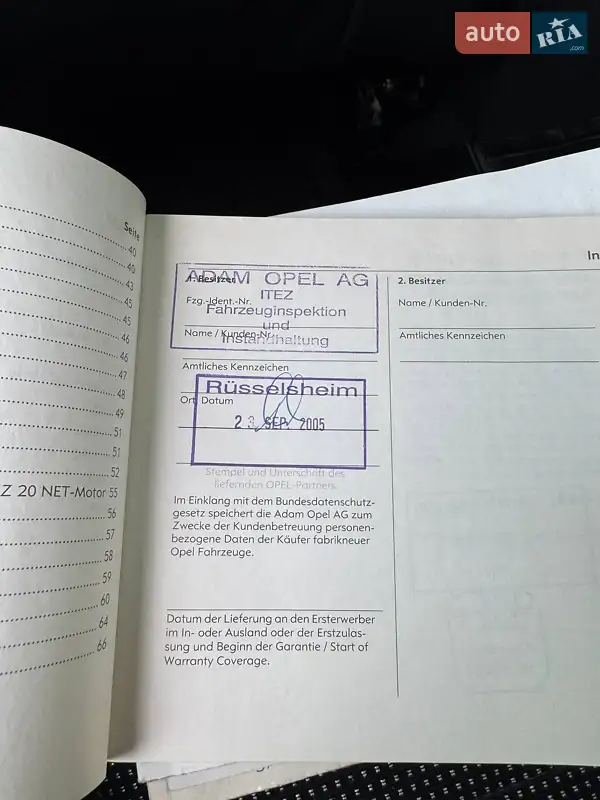 auto RIA .com
Seite
40
40
43
45
45
46
46
47
48
49
51
51
52
Z 20 NET-Motor 55
56
57
58
59
60
64
66
In
1. Besitzer
ADAM OPEL AG
Fzg.-Ident.-Nr.
ITEZ
Fahrzeuginspektion
und
Name / Kunden-Nr.
Instandhaltung
Amtliches Kennzeichen
Rüsselsheim
Ort, Datum
23. SEP. 2005
Stempel und Unterschrift des
liefernden OPEL-Partners.
Im Einklang mit dem Bundesdatenschutz-
gesetz speichert die Adam Opel AG zum
Zwecke der Kundenbetreuung personen-
bezogene Daten der Käufer fabrikneuer
Opel Fahrzeuge.
Datum der Lieferung an den Ersterwerber
im In- oder Ausland oder der Erstzulas-
sung und Beginn der Garantie / Start of
Warranty Coverage.
2. Besitzer
Name / Kunden-Nr.
Amtliches Kennzeichen